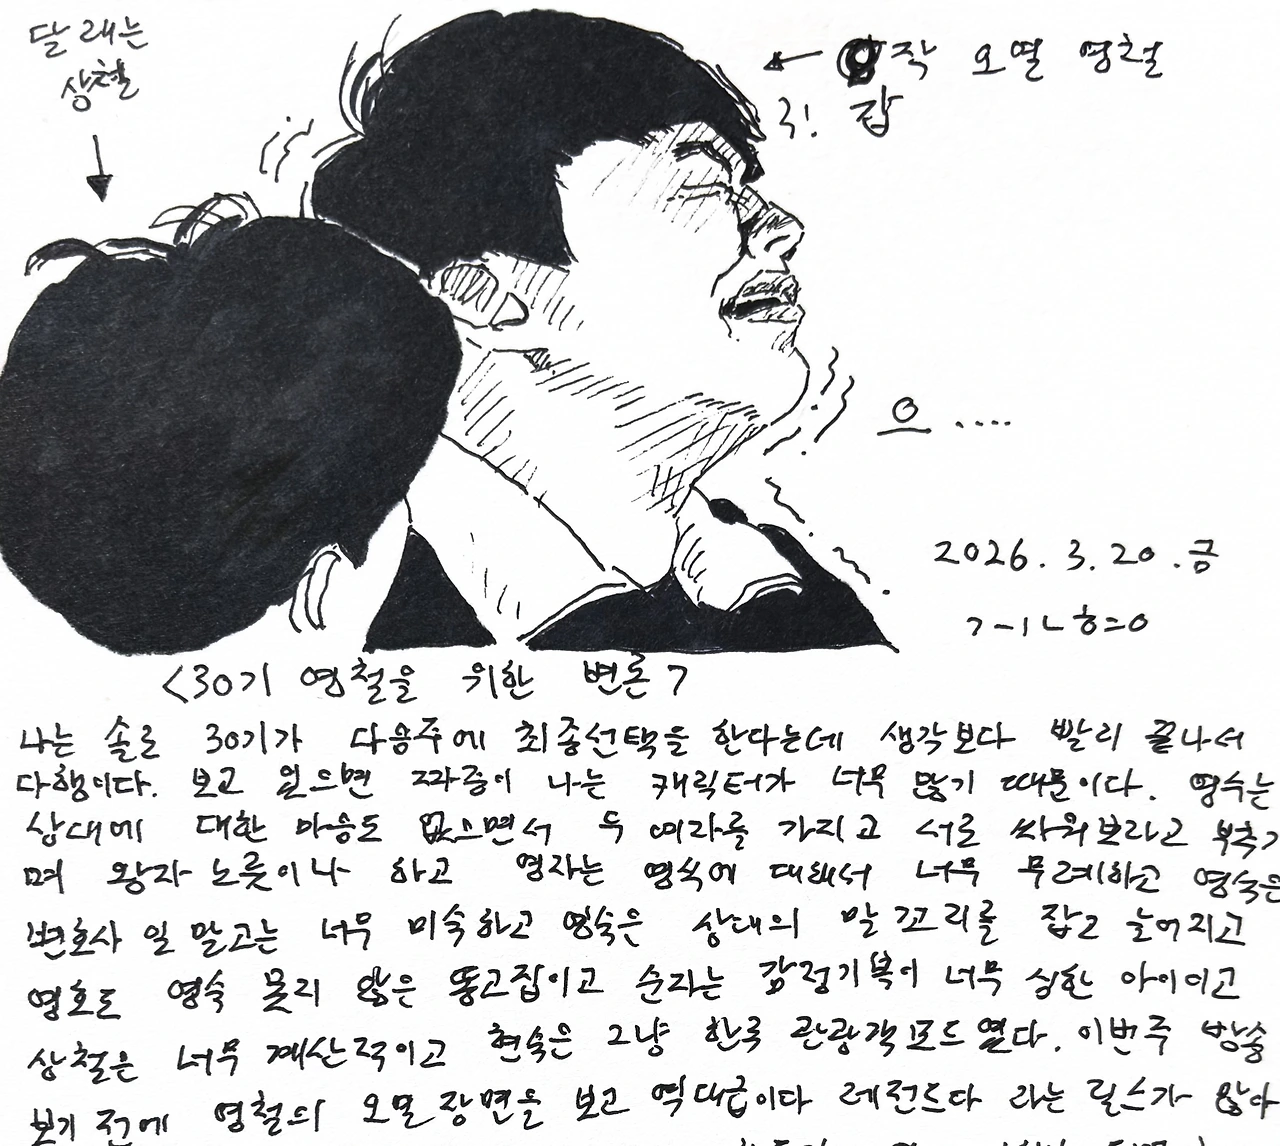 달래는
상철
← 갑작 오열 영철
各! 잡
으....
2026. 3. 20. 금
<30기 영철을 위한 변론>
나는 솔로 30기가 다음주에 최종선택을 한다는데 생각보다 빨리 끝나서
다행이다. 보고 있으면 짜증이 나는 캐릭터가 너무 많기 때문이다. 영수는
상대에 대한 마음도 없으면서 두 여자를 가지고 서로 싸워보라고 부추기
며 왕자 노릇이나 하고 영자는 영식에 대해서 너무 무례하고 영숙은
변호사 일 말고는 너무 미숙하고 영숙은 상대의 말꼬리를 잡고 늘어지고
영호도 영숙 못지 않은 똥고집이고 순자는 감정기복이 너무 심한 아이이고
상철은 너무 계산적이고 현숙은 그냥 한국 관광객모드였다. 이번주 방송
보기 전에 영철의 오열 장면을 보고 역대급이다 레전드다 라는 릴스가 많아